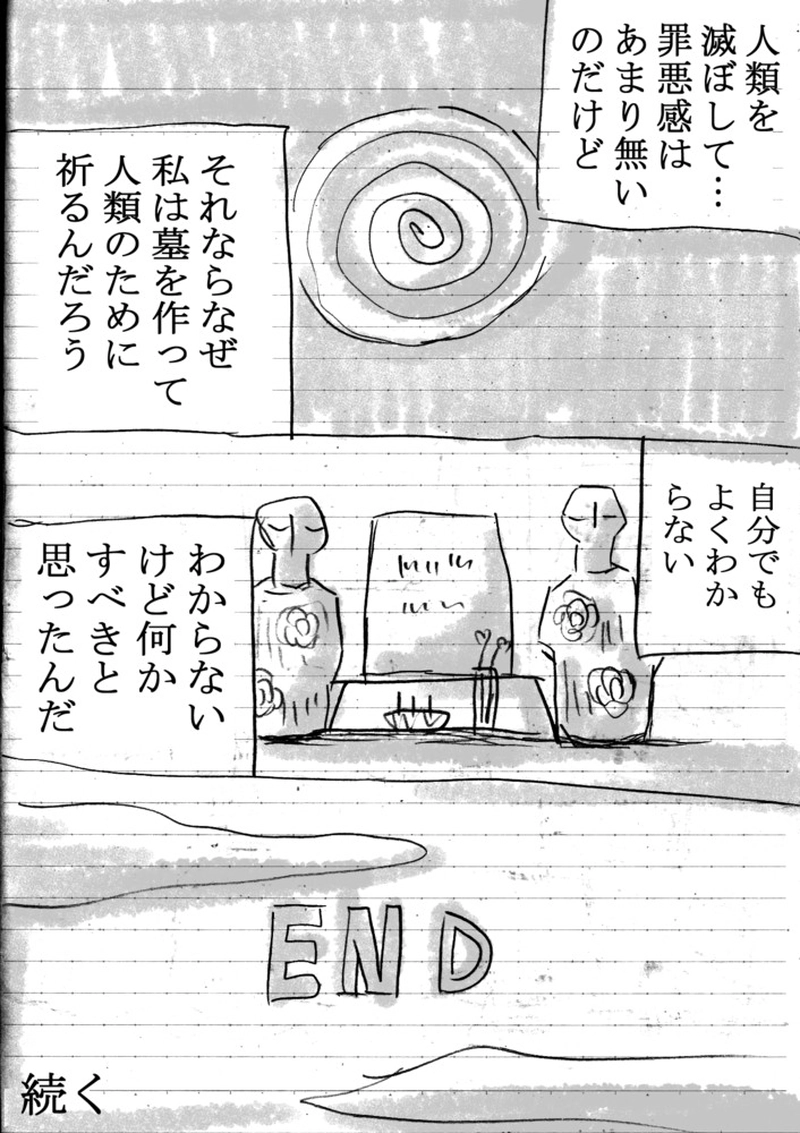 人類を
滅ぼして…
罪悪感は
あまり無い
のだけど
それならなぜ
私は墓を作って
人類のために
祈るんだろう
自分でも
よくわか
らない
わからない
けど何か
すべきと
思ったんだ
END
続く